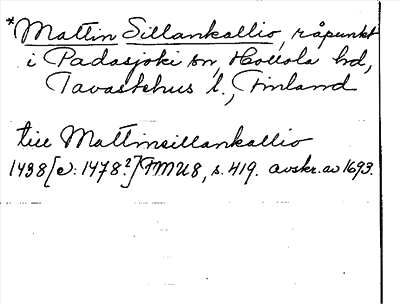 *Mattin Sillankallio, råpunkt
i Padasjoki sn, Hollola hd,
Tavastehus l., Finland
till Mattinsillankallio
1438 [el. 1478?] FMU 8, s. 419. avskr. av 1693.